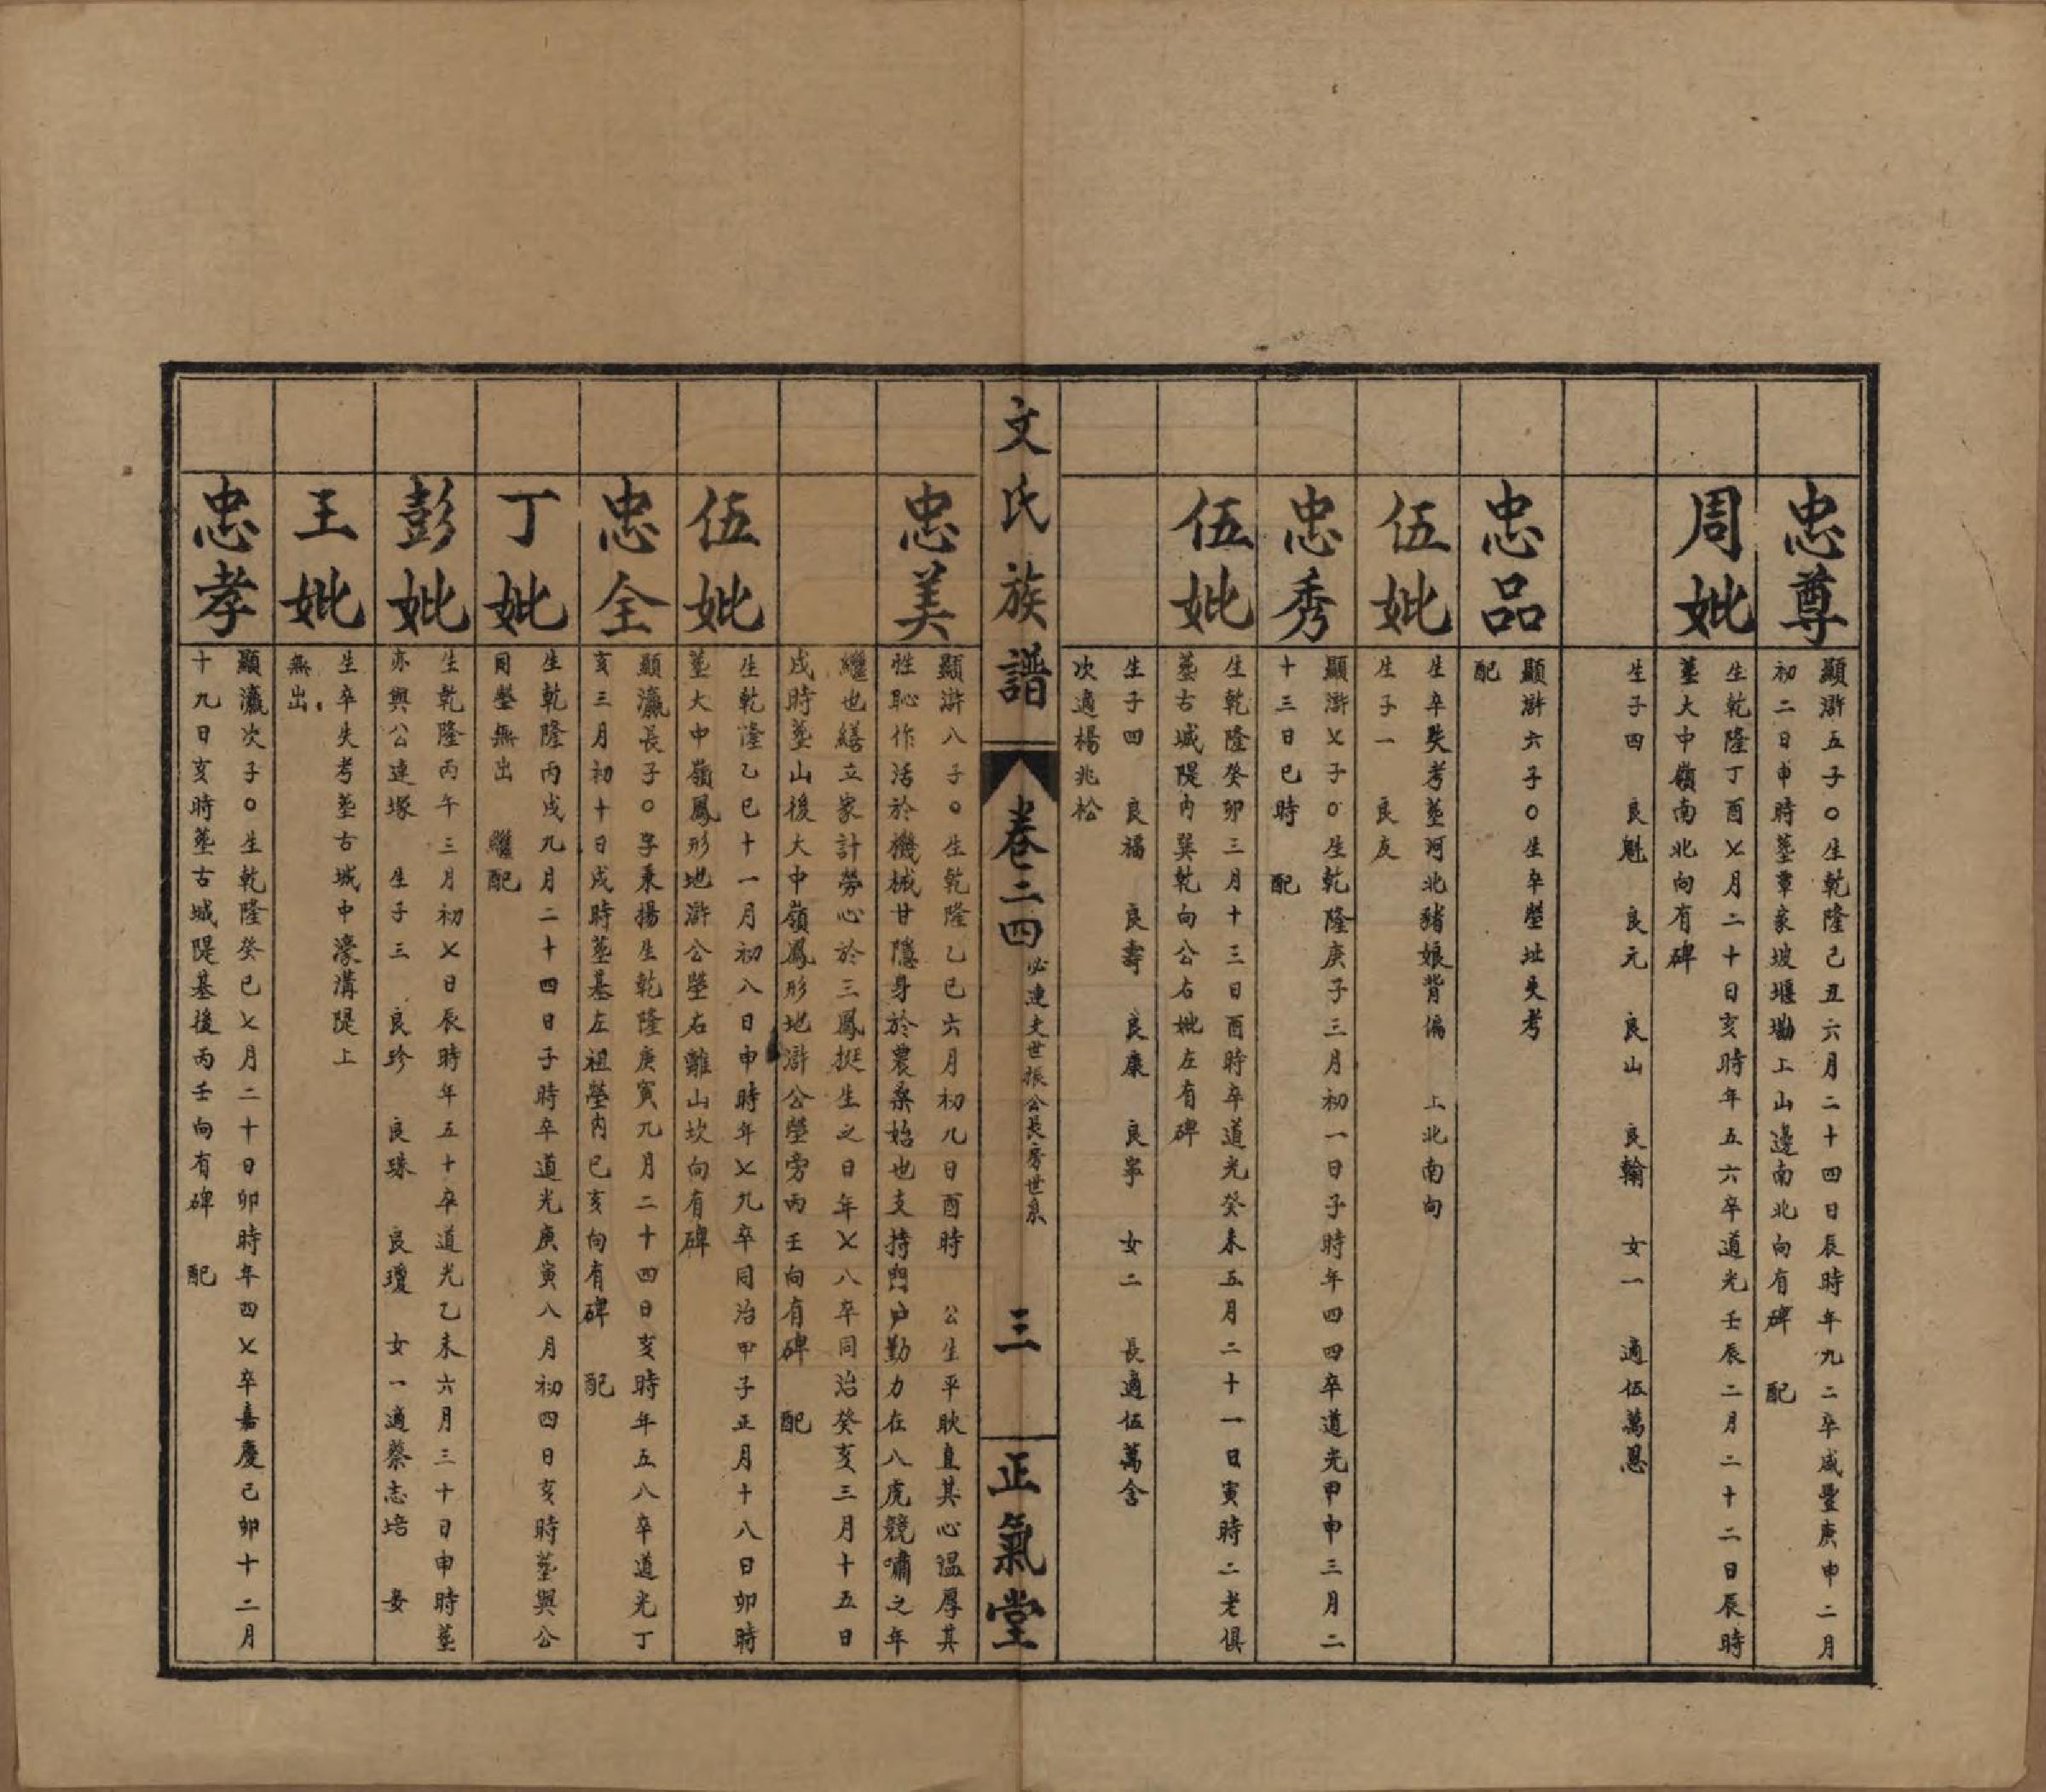 忠尊
顯澥五子○生乾隆己丑六月二十四日辰時年九二卒咸豐庚申二月
初二日申時塟覃家坡堰塝上山邊南北向有碑　配
周妣
生乾隆丁酉乂月二十日亥時年五六卒道光壬辰二月二十二日辰時
塟大中嶺南北向有碑
生子四　良魁　良元　良山　良翰　女一　適伍萬恩
忠品
顯澥六子○生卒塋址失考
配
伍妣
生卒失考塟河北豬娘背偏　上北南向
生子一　良友
忠秀
顯澥乂子○生乾隆庚子三月初一日子時年四四卒道光甲申三月二
十三日巳時　配
伍妣
生乾隆癸卯三月十三日酉時卒道光癸未五月二十一日寅時二老俱
塟古城隄內巽乾向公右妣左有碑
生子四　良福　良壽　良康　良寧　女二　長適伍萬含
次適楊兆松
文氏族譜　卷二四　必達支世振公長房世系　三　正氣堂
忠美
顯澥八子○生乾隆乙巳六月初九日酉時　公生平耿直其心溫厚其
性恥作活於機械甘隱身於農桑始也支持門戶勤力在八虎競嘯之年
繼也繕立家計勞心於三鳳挺生之日年乂八卒同治癸亥三月十五日
戌時塟山後大中嶺鳳形地澥公塋旁丙壬向有碑　配
伍妣
生乾隆乙巳十一月初八日申時年乂九卒同治甲子正月十八日卯時
塟大中嶺鳳形地澥公塋右離山坎向有碑
忠全
顯瀛長子○字秉揚生乾隆庚寅九月二十四日亥時年五八卒道光丁
亥三月初十日戌時塟基左祖塋內巳亥向有碑　配
丁妣
生乾隆丙戌九月二十四日子時卒道光庚寅八月初四日亥時塟與公
同塋無出　繼配
彭妣
生乾隆丙午三月初乂日辰時年五十卒道光乙未六月三十日申時塟
亦與公連塚　生子三　良珍　良珠　良瓊　女一適蔡志培　妾
王妣
生卒失考塟古城中濠溝隄上
無出
忠孝
顯瀛次子○生乾隆癸巳乂月二十日卯時年四乂卒嘉慶己卯十二月
十九日亥時塟古城隄基後丙壬向有碑　配